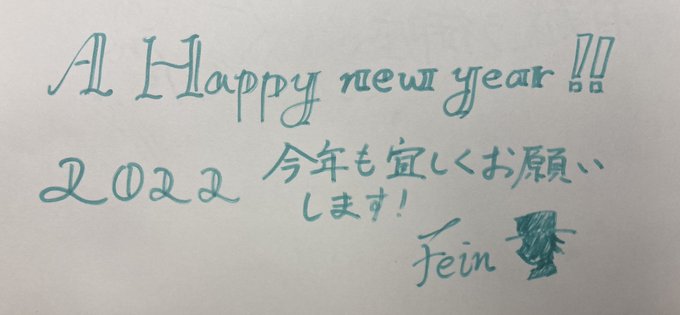 A Happy new year!!
2022 今年も宜しくお願い
します!
Fein